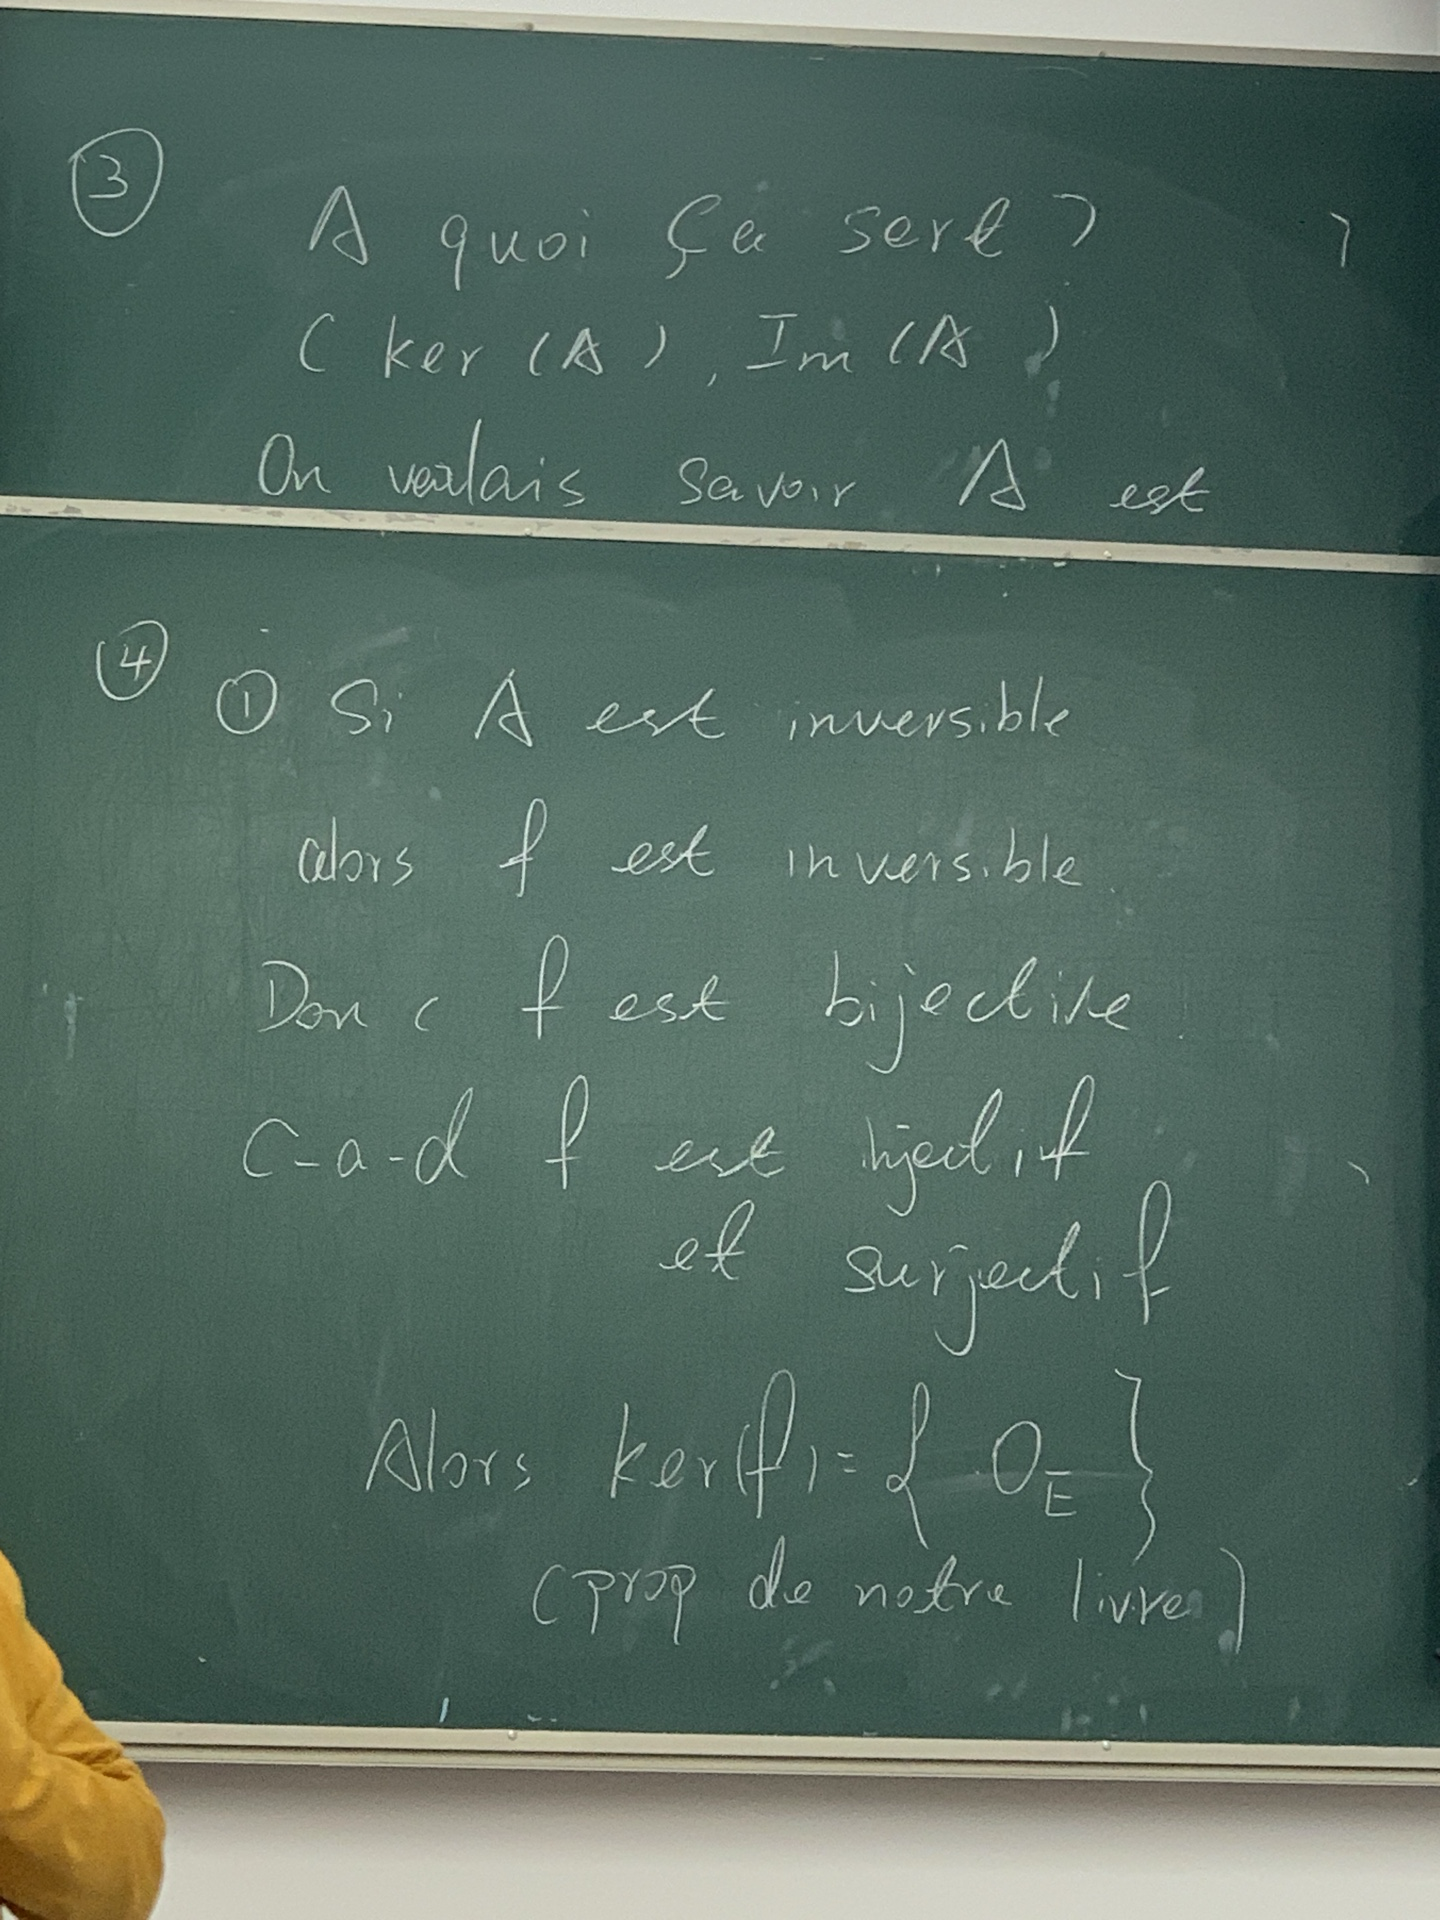 ③
A quoi ça sert ?
( ker (A), Im (A)
On voulais savoir A est
④ ① Si A est inversible
alors f est inversible
Donc f est bijective
C-a-d f est injectif
et surjectif
Alors ker(f) = { 0_E }
(prop de notre livre)